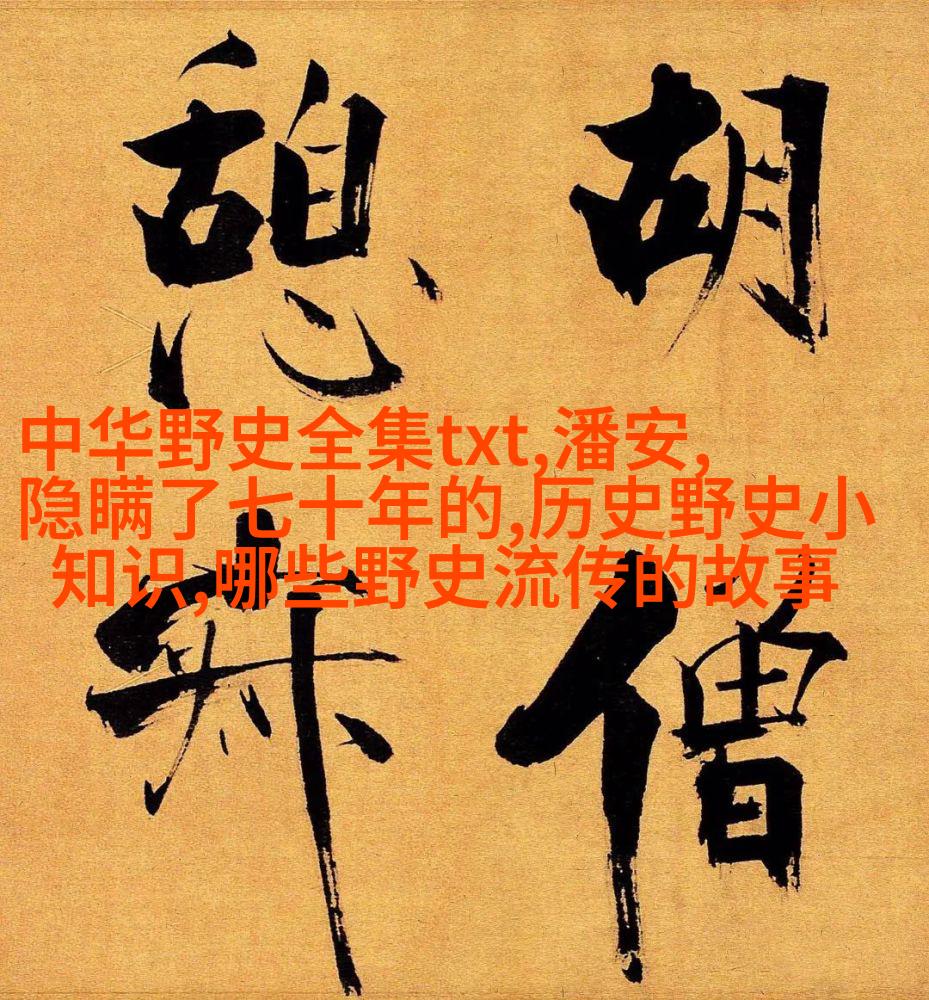 胡僧
憩
中华野史全集txt,潘安,
隐瞒了七十年的,历史野史小
知识,哪些野史流传的故事